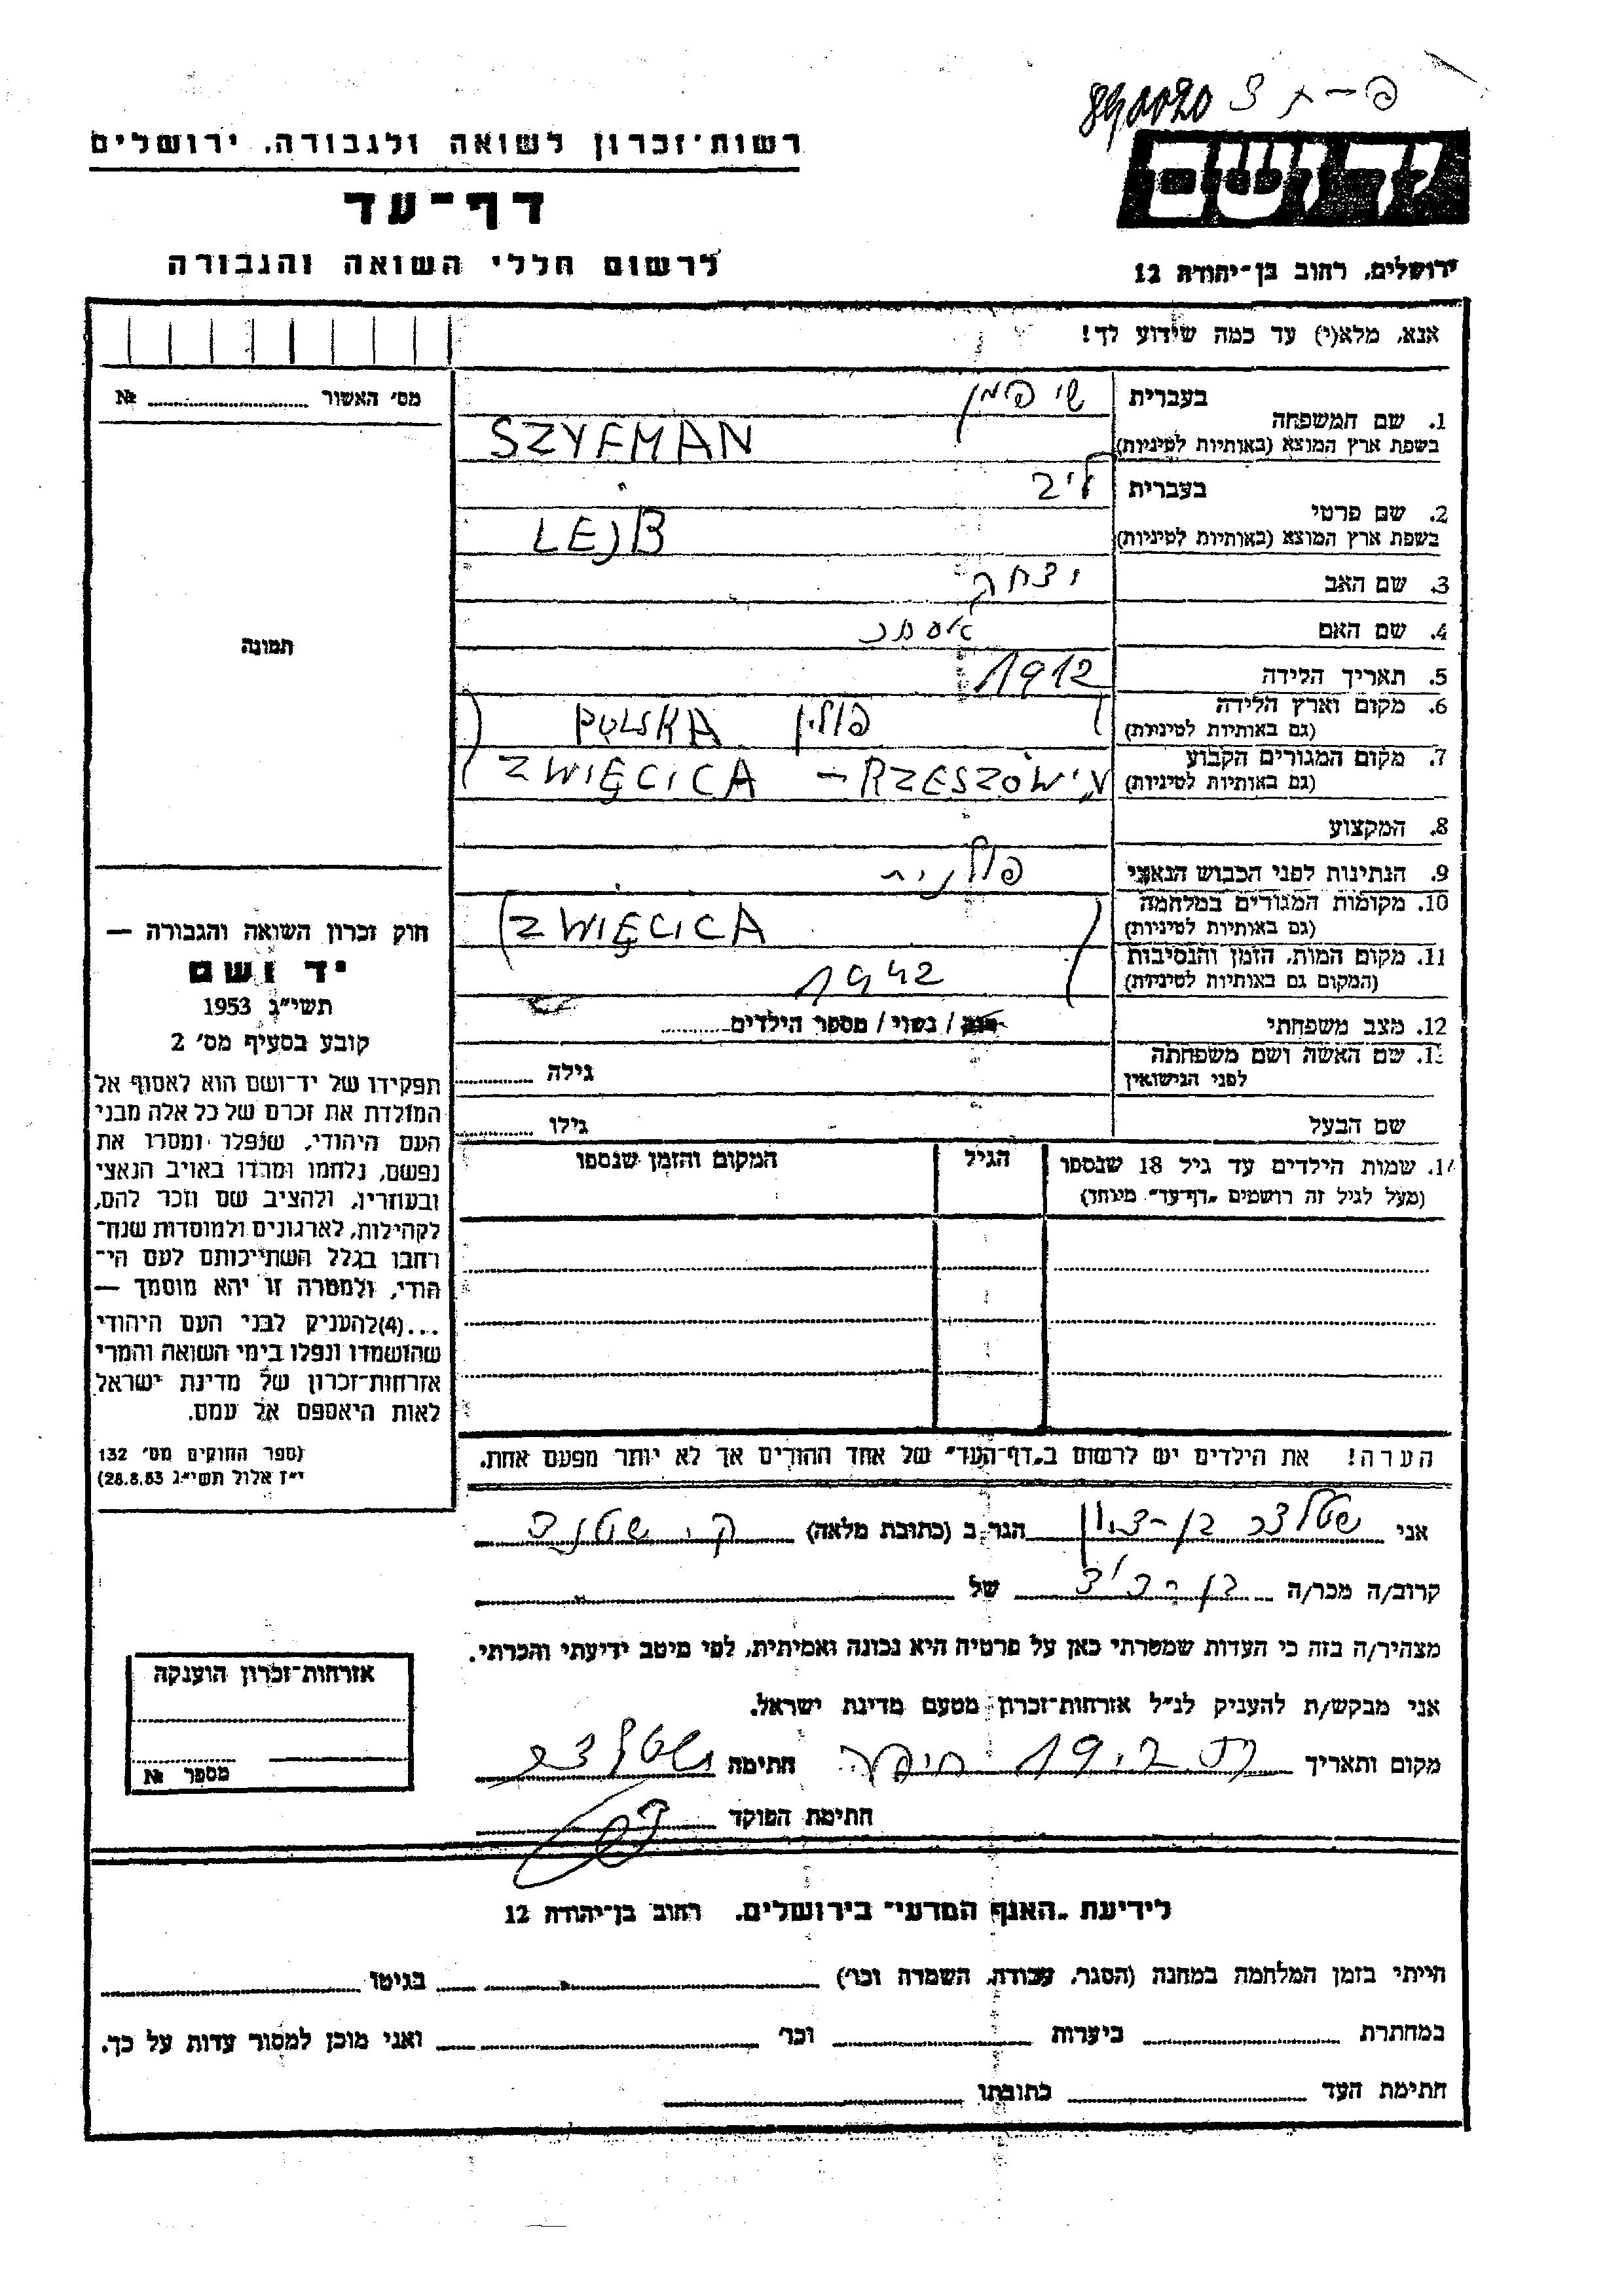 פ-ת צ
רשות-זכרון לשואה ולגבורה, ירושלים
דף-עד
לרשום חללי השואה והגבורה
יד ושם
ירושלים, רחוב בן-יהודה 12
אנא, מלא(י) עד כמה שידוע לך!
מס׳ האשור № ........
תמונה
1. שם המשפחה
בעברית שייפמן
בשפת ארץ המוצא (באותיות לטיניות) SZYFMAN
2. שם פרטי
בעברית לייב
בשפת ארץ המוצא (באותיות לטיניות) LEJB
3. שם האב יצחק
4. שם האם אסתר
5. תאריך הלידה 1912
6. מקום וארץ הלידה
(גם באותיות לטיניות) פולין POLSKA
7. מקום המגורים הקבוע
(גם באותיות לטיניות) ZWIĘCICA - RZESZÓW ע״י
8. המקצוע
9. הנתינות לפני הכבוש הנאצי פולנית
10. מקומות המגורים במלחמה
(גם באותיות לטיניות) ZWIĘCICA
11. מקום המות, הזמן והנסיבות
(המקום גם באותיות לטיניות) 1942
12. מצב משפחתי רוק / נשוי / מספר הילדים........
13. שם האשה ושם משפחתה גילה ........
לפני הנישואין
שם הבעל גילו ........
14. שמות הילדים עד גיל 18 שנספו הגיל המקום והזמן שנספו
(מעל לגיל זה רושמים „דף-עד״ מיוחד)
חוק זכרון השואה והגבורה —
יד ושם
תשי״ג 1953
קובע בסעיף מס׳ 2
תפקידו של יד-ושם הוא לאסוף אל
המולדת את זכרם של כל אלה מבני
העם היהודי, שנפלו ומסרו את
נפשם, נלחמו ומרדו באויב הנאצי
ובעוזריו, ולהציב שם וזכר להם,
לקהילות, לארגונים ולמוסדות שנח-
רחבו בגלל השתייכותם לעם הי-
הודי, ולמטרה זו יהא מוסמך —
...(4)להעניק לבני העם היהודי
שהושמדו ונפלו בימי השואה והמרי
אזרחות-זכרון של מדינת ישראל
לאות היאספם אל עמם.
(ספר החוקים מס׳ 132
י״ז אלול תשי״ג 28.8.53)
הערה! את הילדים יש לרשום ב„דף-העד״ של אחד ההורים אך לא יותר מפעם אחת.
אני שטלצר בן-ציון הגר ב (כתובת מלאה) ק.
קרוב/ה מכר/ה בן של
מצהיר/ה בזה כי העדות שמסרתי כאן על פרטיה היא נכונה ואמיתית, לפי מיטב ידיעתי והכרתי.
אני מבקש/ת להעניק לנ״ל אזרחות-זכרון מטעם מדינת ישראל.
מקום ותאריך חיפה חתימה שטלצר
חתימת הפוקד
אזרחות-זכרון הוענקה
מספר №
לידיעת „האגף המדעי״ בירושלים, רחוב בן-יהודה 12
הייתי בזמן המלחמה במחנה (הסגר, עבודה, השמדה וכו׳) בגיטו
במחתרת ביערות וכו׳ ואני מוכן למסור עדות על כך.
חתימת העד כתובתו